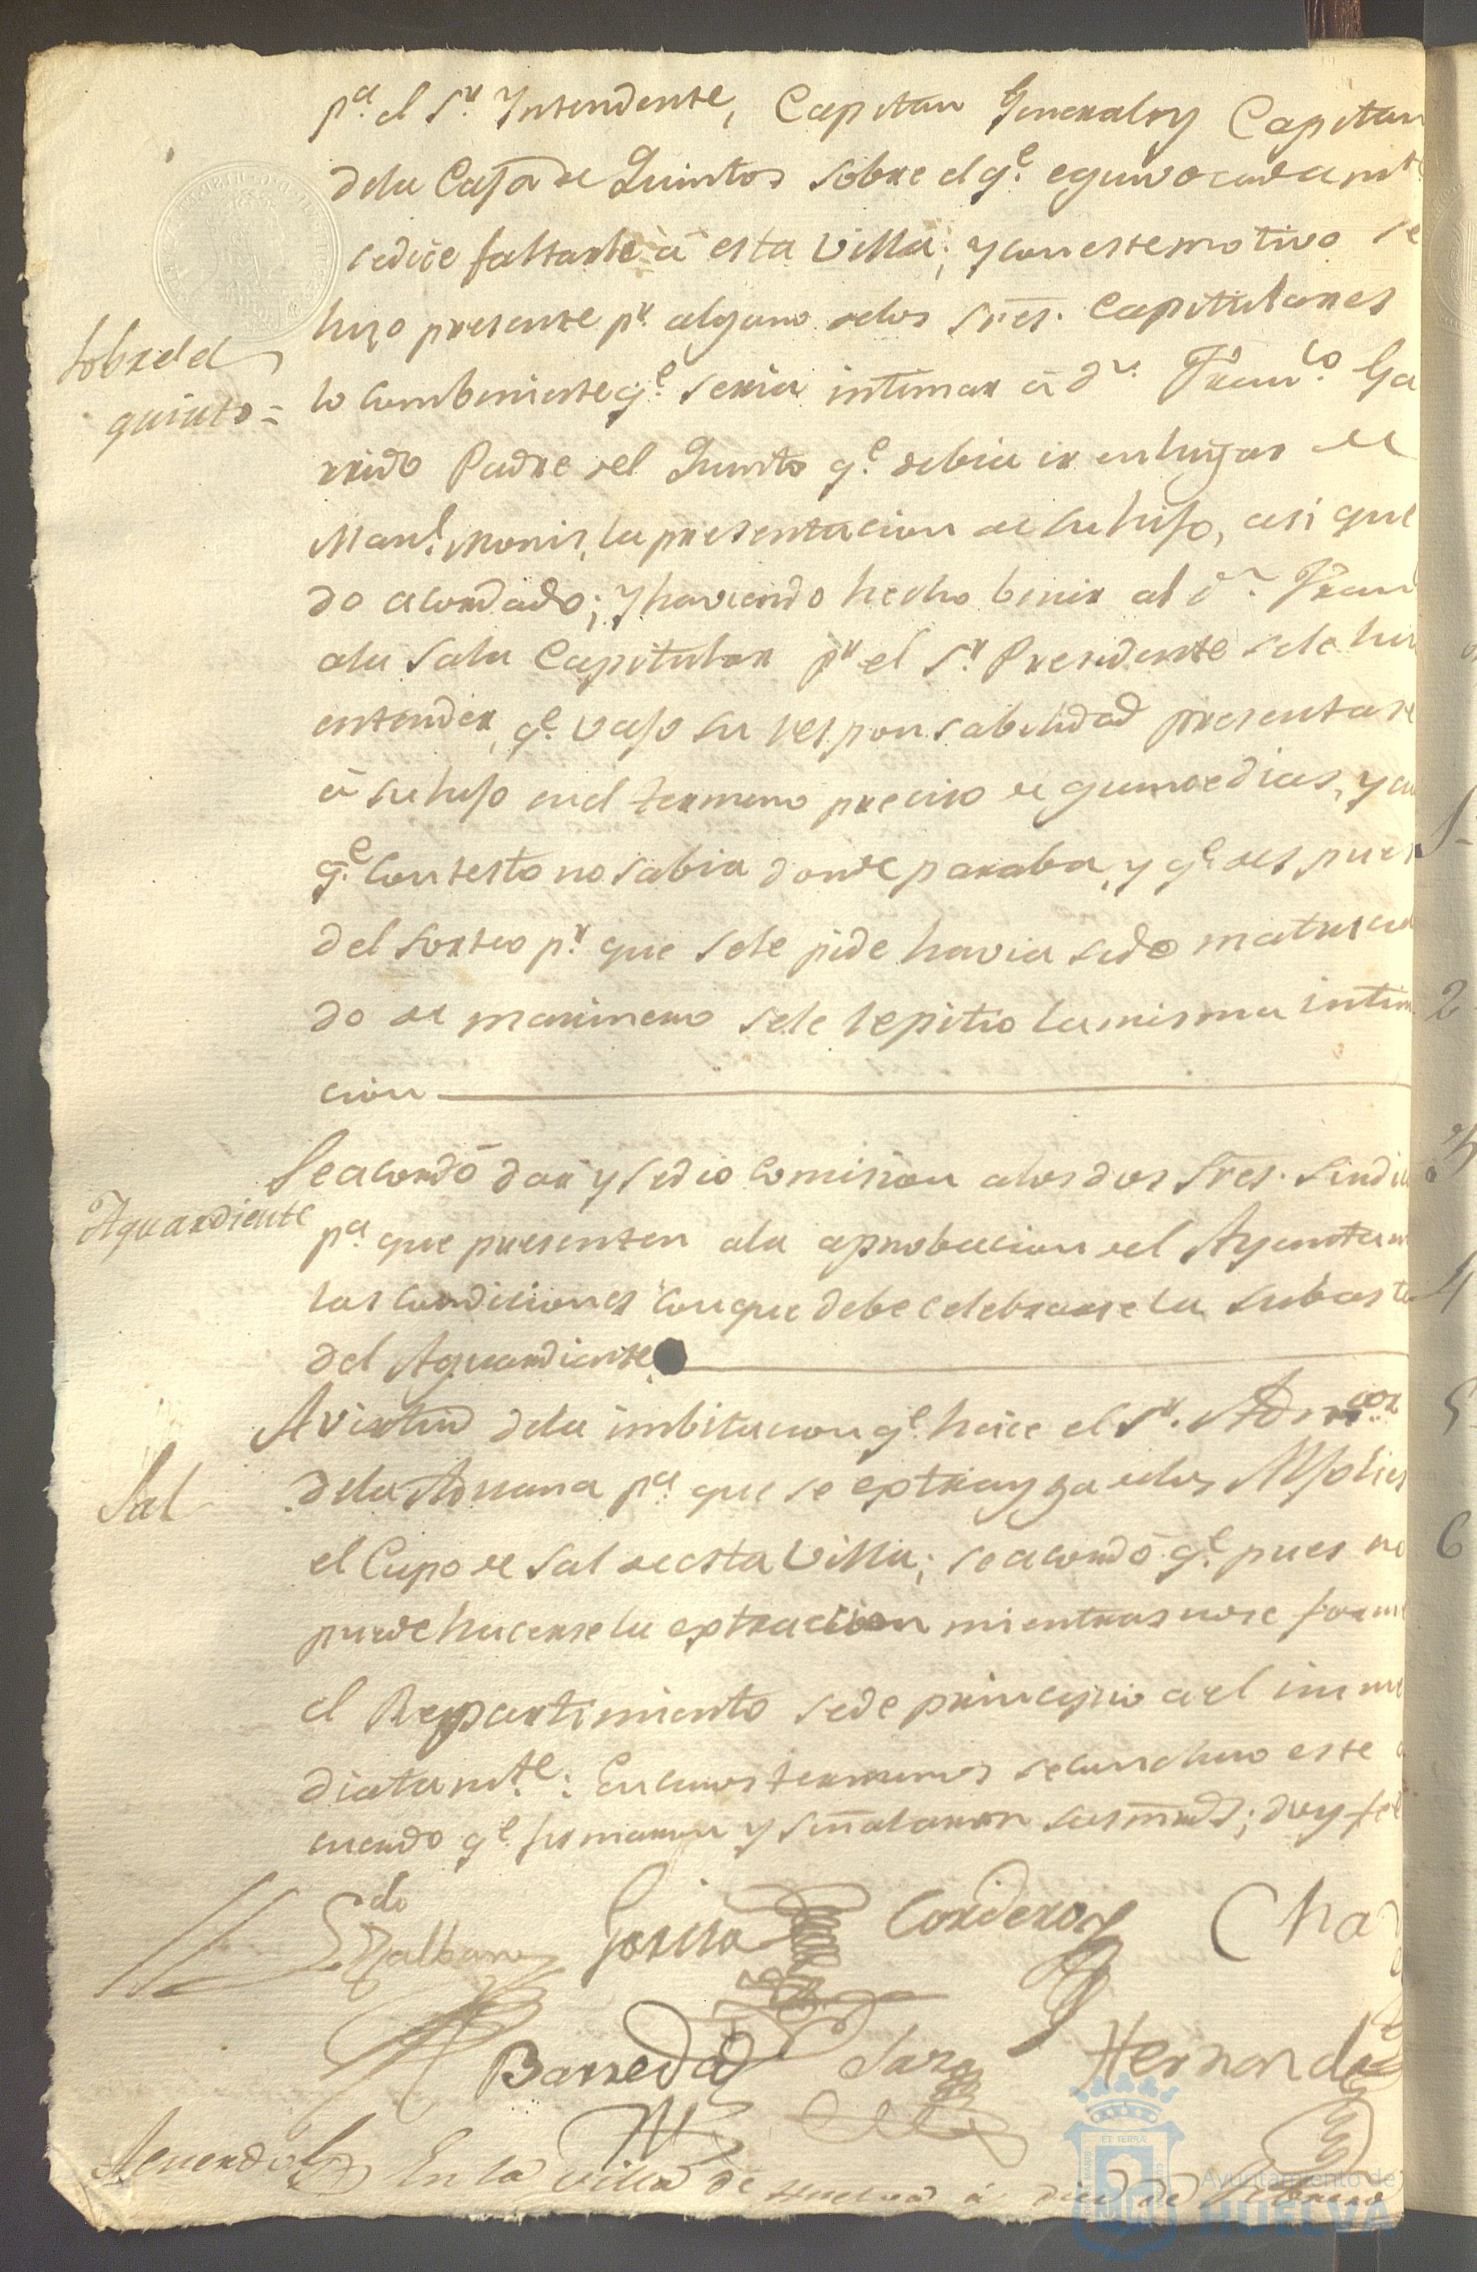 pª. el Sr. Yntendente, Capitan General y Capitan
dela Caja de Quintos sobre el qe. equivocadamte.
sedice faltarle á esta Villa; y con este motivo se
hizo presente pr. alguno delos Sres. Capitulares
Sobre el
quinto =
lo combeniente qe. seria intimar á Dn. Franco. Ga
rrido Padre del Quinto qe. debia ir en lugar de
Manl. Monis, la presentacion de su hijo, asi que
do acordado; y haviendo hecho benir al Dn. Fran
ala Sala Capitular pr. el Sr. Presidente sele hi
entender, qe. vajo su responsabilidad presentase
á su hijo en el termino preciso de quince dias, y
qe. contesto no sabia donde paraba, y qe. despues
del sorteo pr. que sele pide havia sido matricu
do de marinero sele repitio la misma intim
cion
Se acordó dar y se dio comision alos dos Sres. Sindi
Aguardiente
pª. que presenten ala aprobacion del Ayuntam
las condiciones con que debe celebrarse la subasta
del Aguardiente
A virtud dela imbitacion qe. hace el Sr. Admor.
Sal
dela Aduana pª. que se extrayga delos Alfolies
el Cupo de Sal de esta Villa; se acordó qe. pues no
puede hacerse la extraccion mientras no se forme
el Repartimiento se de principio a el imme
diatamte.: En cuios terminos se concluio este a
cuerdo qe. firmaron y señalaron sus mrds; doy fe
Garcia Cordero Cha
Barreda Hernand
Acuerdo En la Villa de Huelva á diez de Febrero
Ayuntamiento de
HUELVA